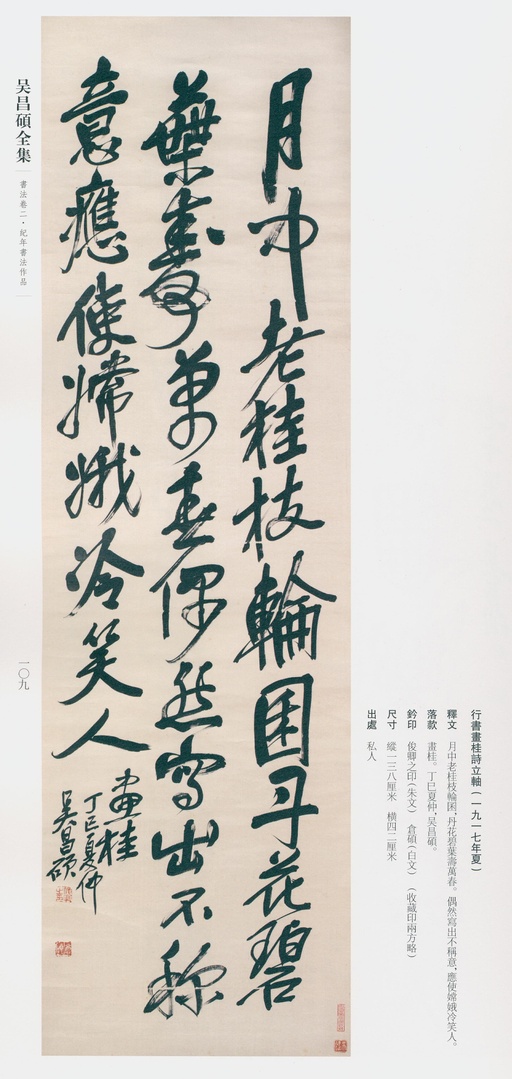 行書畫桂詩立軸（一九一七年夏）
釋文　月中老桂枝輪囷，丹花碧葉壽萬春。偶然寫出不稱意，應使嫦娥冷笑人。
落款　畫桂。丁巳夏仲，吴昌碩。
鈐印　俊卿之印（朱文）　倉碩（白文）　（收藏印兩方略）
尺寸　縱一三八厘米　橫四二厘米
出處　私人
月中老桂枝輪囷丹花碧
葉壽萬春偶然寫出不稱
意應使嫦娥冷笑人
畫桂
丁巳夏仲
吴昌碩
吴昌碩全集
書法卷二·紀年書法作品
一〇九